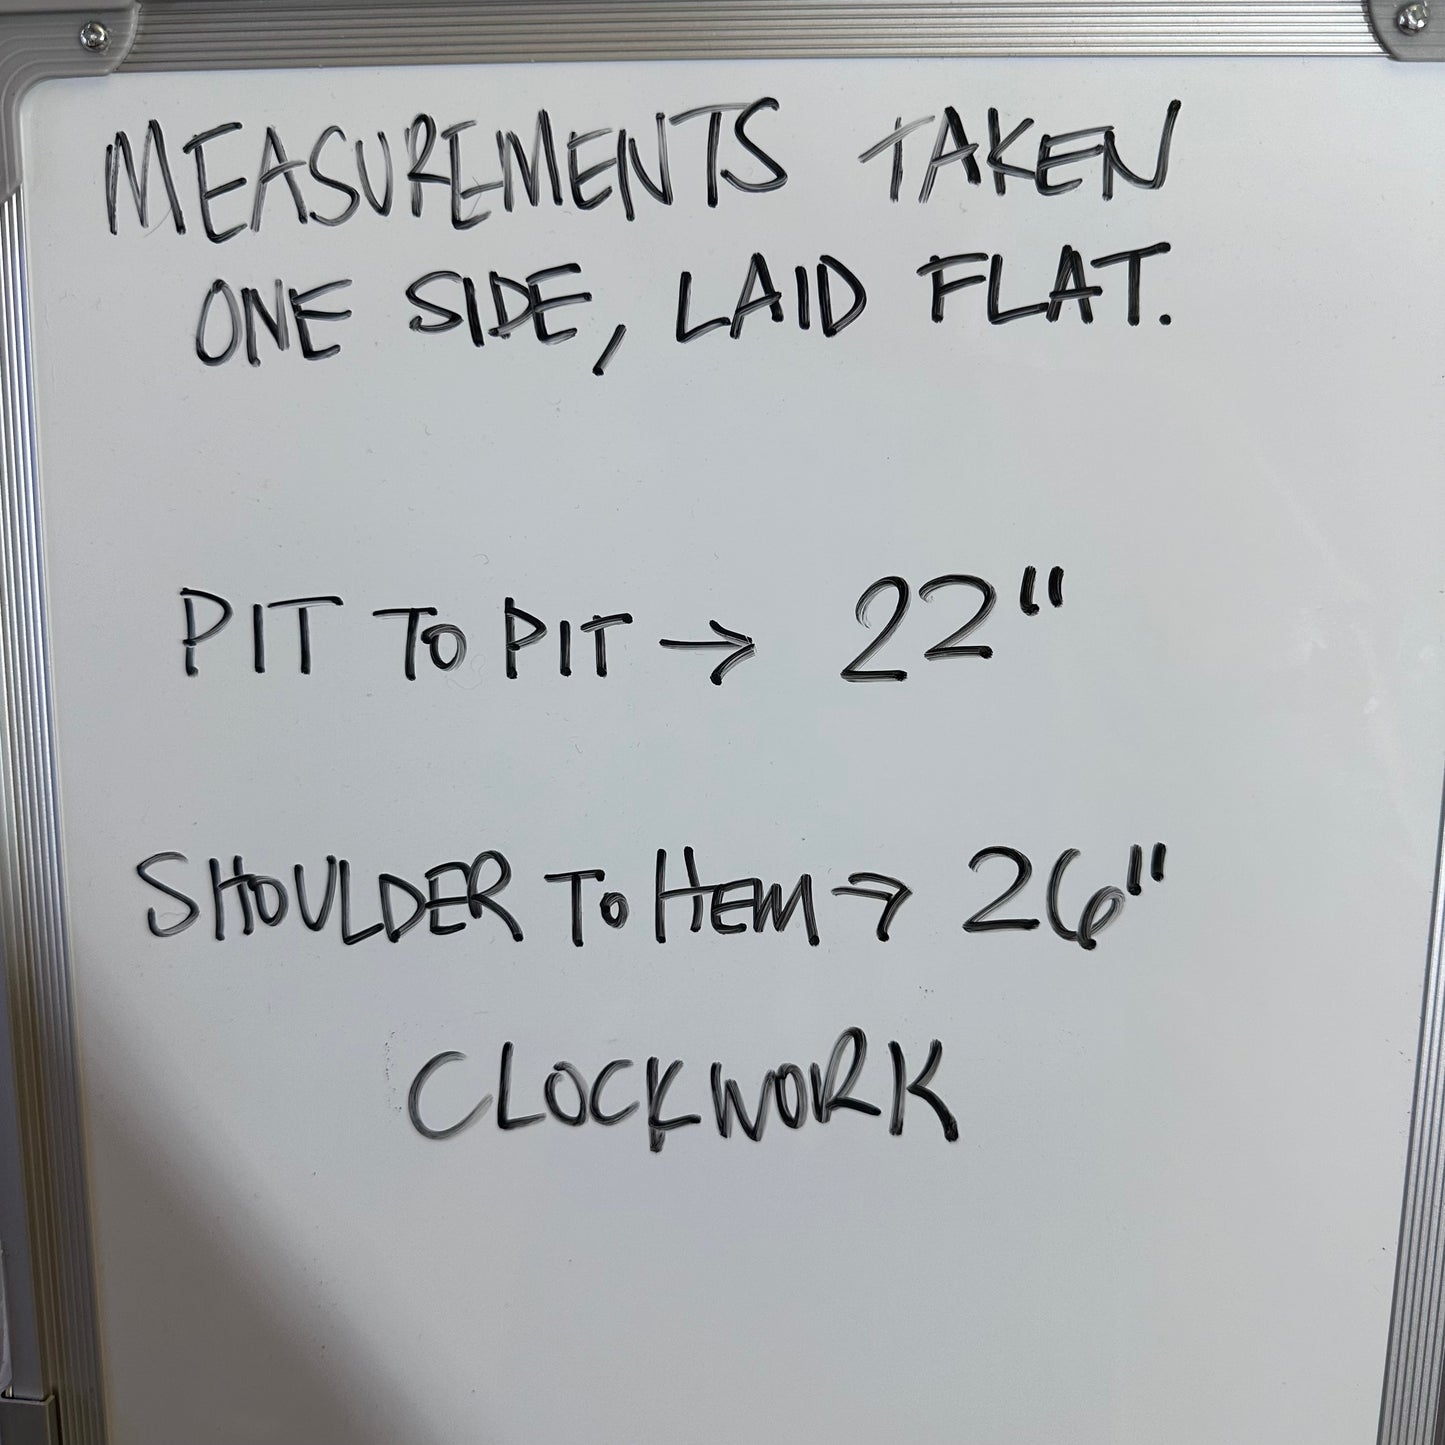 MEASUREMENTS TAKEN
ONE SIDE, LAID FLAT.
PIT TO PIT → 22"
SHOULDER TO HEM → 26"
CLOCKWORK